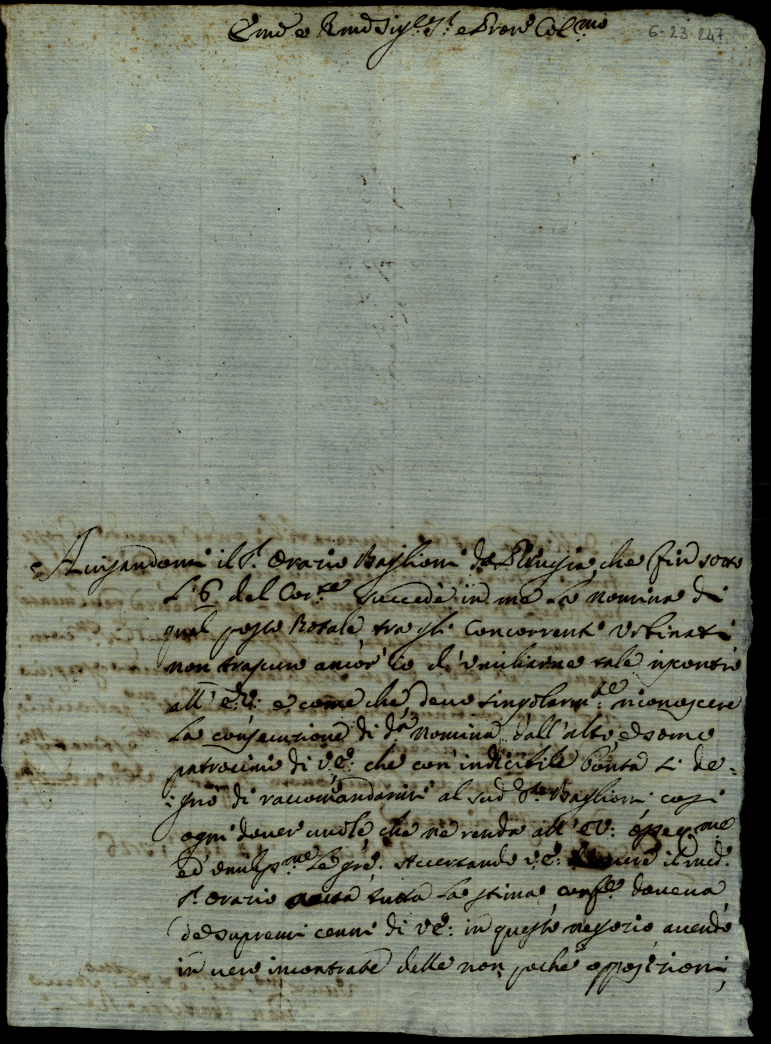 Em̃o e Rm̃o Sig.r S.r e Pron̄e Col.mo
6-23-247
Auisandomi il S.r Orazio Baglioni da Perugia, che fin sotto
li 6 del Cor.te succedè in me la nomina di
quel posto Rotale tra gli Concorrenti Vrbinati
non trascuro ancor' io d' umiliarne tale riscontro
all' E: V: e come che deuo singolarm.te riconoscere
la consecuzione di d.a Nomina dall' alto, e sommo
patrocinio di V: E: che con' indicibile bontà si de=
:gnò di raccomandarmi al sud.o S.r Baglioni, così
ogni douer uuole che ne renda all' E V: osseq.me
ed umiliss.me le grẽ. Accertando V: E: il med.o
S.r Orazio tutta la stima, conf.e doueua
de supremi cenni di V E: in questo negozio auendo
in uero incontrate delle non poche opposizioni,